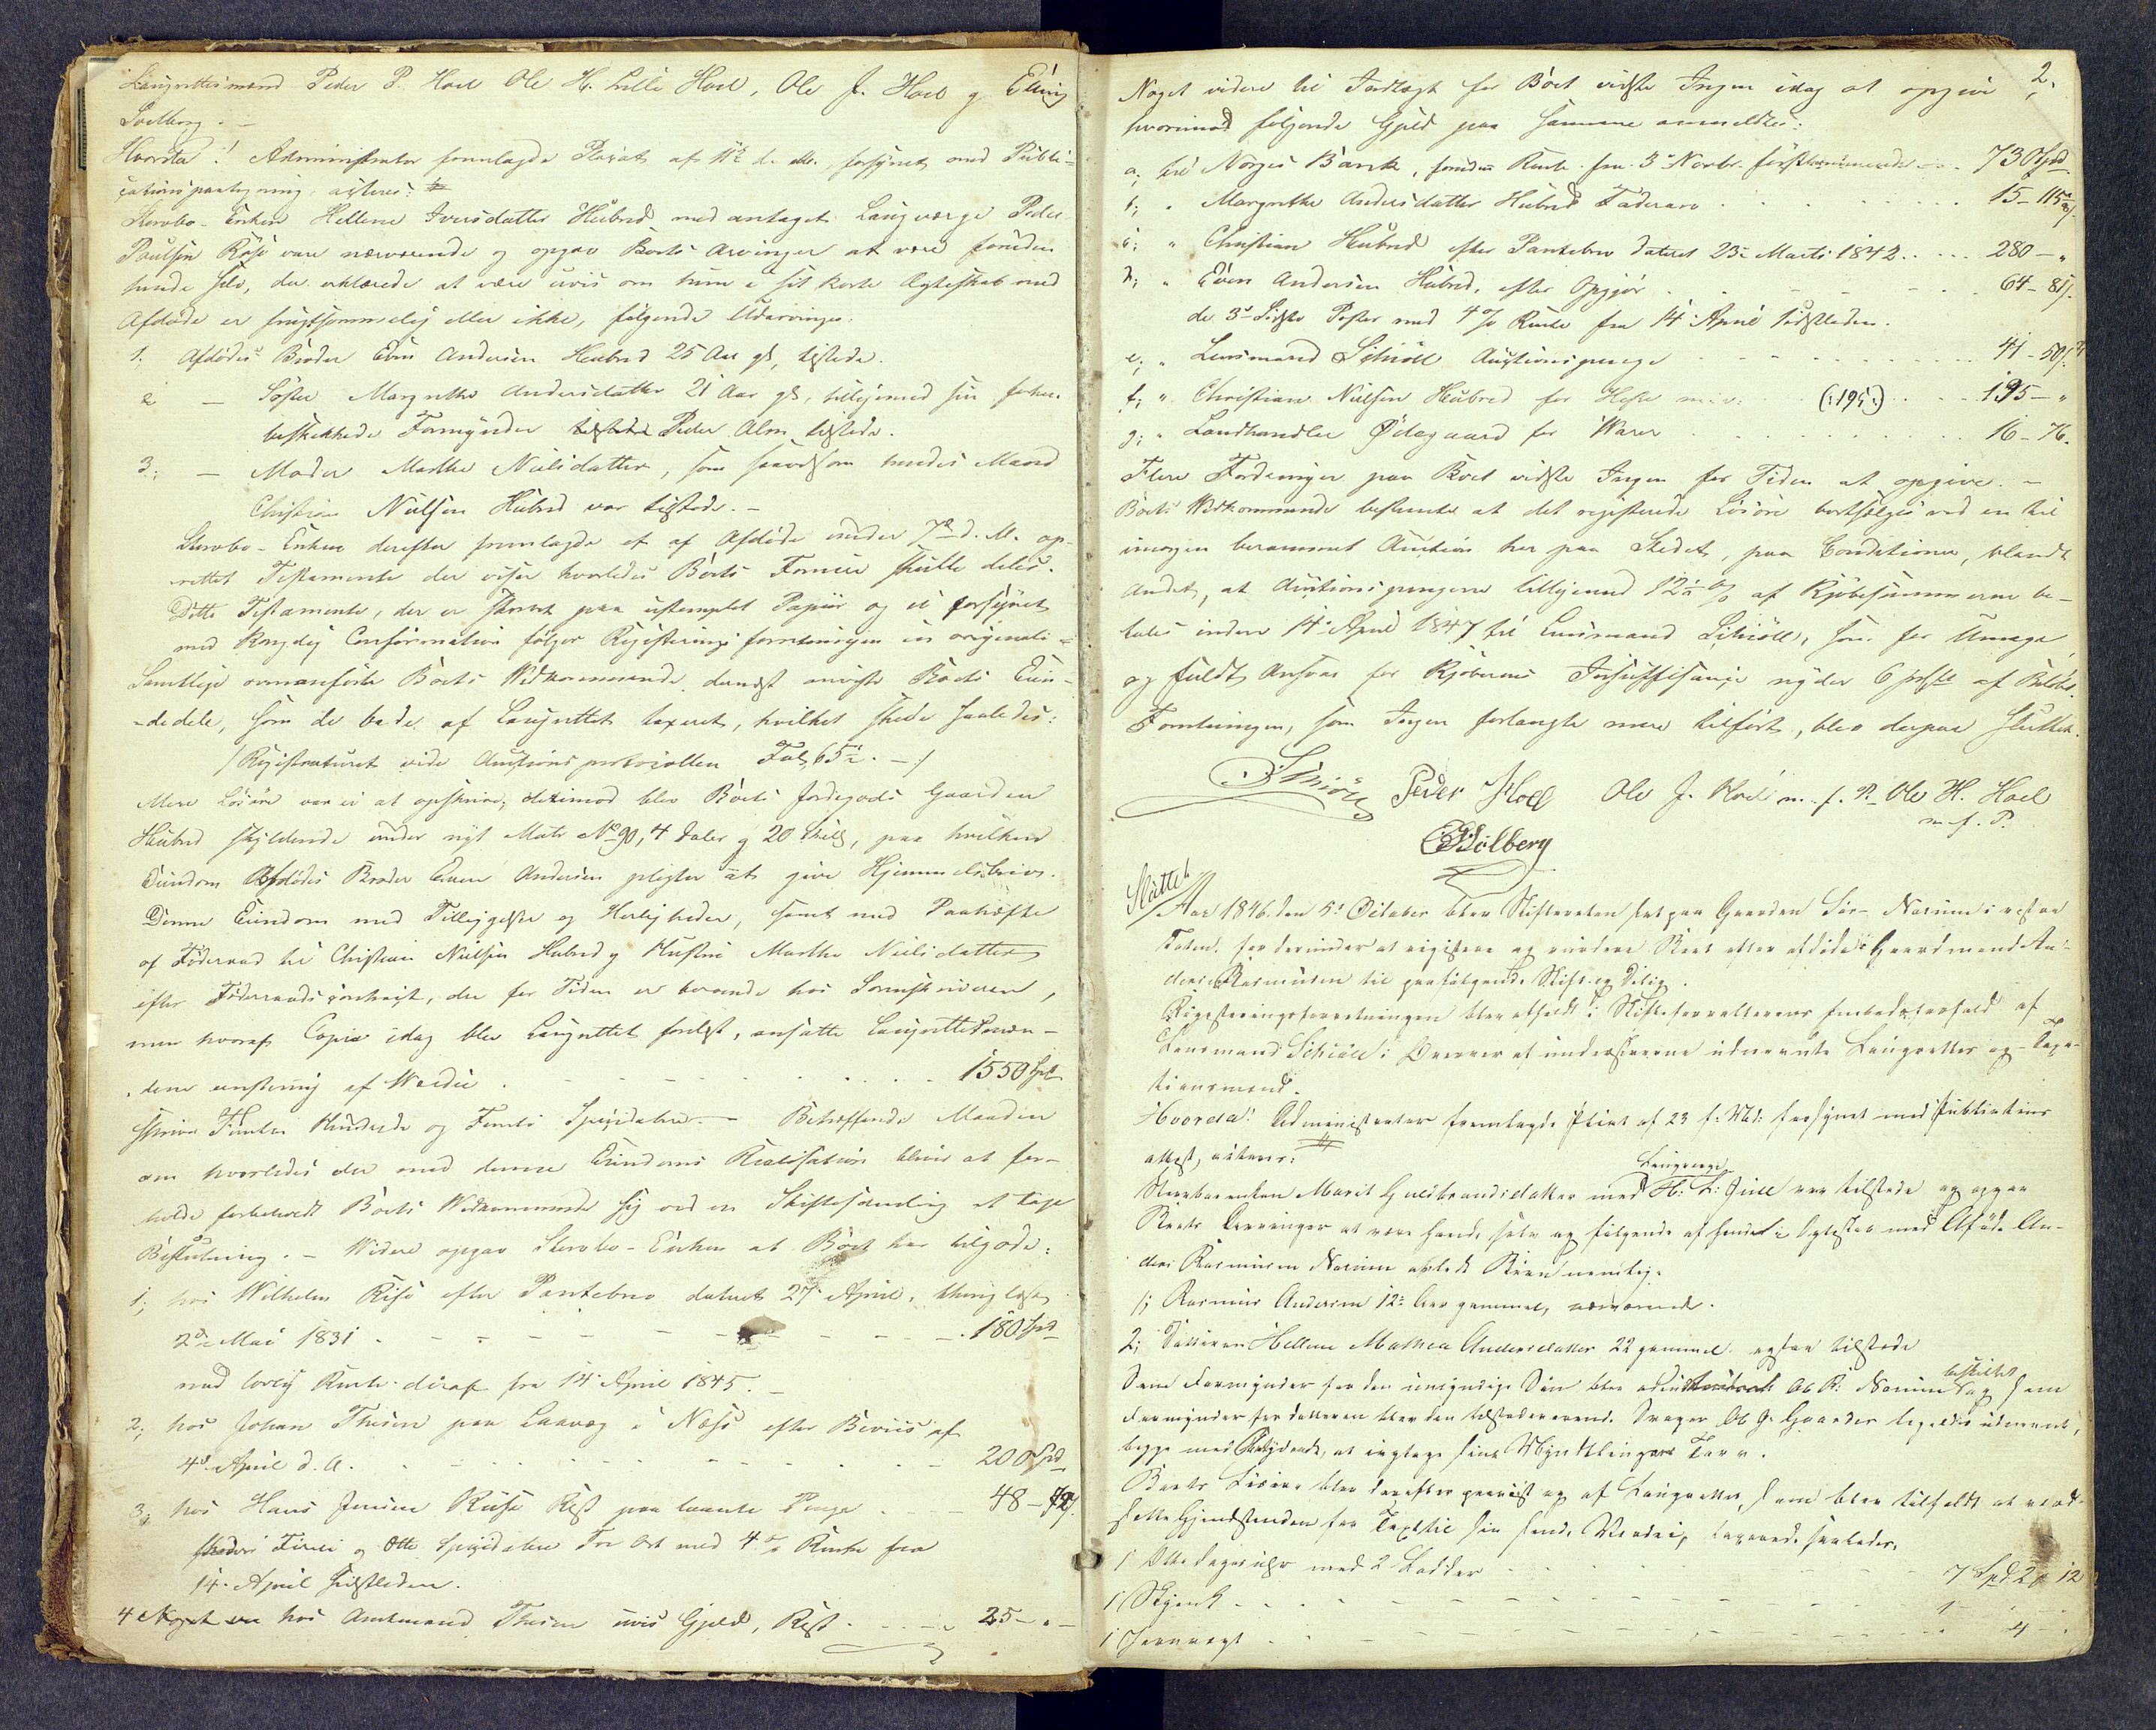 Laugrettesmænd Peder P. Hoel Ole H. Lille Hoel, Ole J. Hoel og Elling
Solberg. –
Hvorda! Administrator fremlagde Placat af 11te d. M., forsynet med Publi-
cationspaategning, acteres:
Stervbo-Enken Hellene Iversdatter Hubred med antaget Laugværge Peder
Poulsen Riise vare nærværende og opgav Boets Arvinger at være foruden
hende selv, der erklærede at være uvis om hun i sit korte Ægteskab med
Afdøde er frugtsommelig eller ikke, følgende Udarvinger.
1. Afdødes Broder Even Andersen Hubred 25 Aar gl, tilstede.
2 – Søster Margrethe Andersdatter 21 Aar gl, tilligemed sin forhen
beskikkede Formynder Peder Alm tilstede.
3; – Moder Marthe Nielsdatter, som saavelsom hendes Mand
Christian Nielsen Hubred var tilstede. –
Stervbo-Enken derefter fremlagde et af Afdøde under 7de d. M. op-
rettet Testamente der viser hvorledes Boets Formue skulle deles.
Dette Testamente, der er skrevet paa ustemplet Papiir og ei forsynet
med Kongelig Confirmation følger Registreringsforretningen in originali =
Samtlige ovenanførte Boets Vedkommende dernæst anviste Boets Eien-
-dele, som de bade af Laugrettet taxeret, hvilket skede saaledes:
/Registraturet vide Auctionsprotocollen Fol, 65 –./
Mere Løsøre var ei at opskrive, derimod blev Boets Jordegods Gaarden
Hubred skyldende under nyt Matr No 90, 4 Daler og 20 Skill, paa hvilken
Eiendom Afdødes Broder Even Andersen pligter at give Hjemmelsbrev.
Denne Eiendom med Tilliggelser og Herligheder, samt med Paahæfte
af Føderaad til Christian Nielsen Hubred og Hustru Marthe Nielsdatter
efter Føderaadscontract, der for Tiden er beroende hos Sorenskriveren,
men hvoraf Copie idag blev Laugrettet forelæst, ansatte Laugrettesmæn-
dene eenstemmig af Værdie . . . . . 1550 Spd
skriver Femten Hundrede og Femti Speciedaler. – Betræffende Maaden
om hvorledes der med denne Eiendoms Realisation bliver at for-
holde forbeholdt Boets Vedkommende sig ved en Skiftesamling at tage
Beslutning. – Videre opgav Stervbo-Enken at Boet har tilgode:
1; hos Wilhelm Riise efter Pantebrev dateret 27 April, thinglæst
2den Mai 1831 . – – – – 180 Spd
med lovlig Rente deraf fra 14 April 1845. –
2; hos Johan Thesen paa Laavæg i Næss efter Beviis af
4de April d. A. . – – – 200 Spd
3; hos Hans Jensen Riise Rest paa laante Penge . . – 48 – 72/.
skriver Firti og Otte Speciedaler Tre Ort med 4 % Rente fra
14. April sidstleden.
4 hos Amtmand Thesen uvis Gjeld, Rest . . . – 25 – „ –
2.
Noget videre til Indtægt for Boet vidste Ingen idag at opgive
hvorimod følgende Gjeld paa samme anmeldtes:
a; til Norges Bank, foruden Rente fra 3 Novbr. førstkommende – – . 730 Spd
b; „ Margrethe Andersdatter Hubred Fæderarv . . . . . 15 – 115/.
c; „ Christian Hubred efter Pantebrev dateret 23 Marts 1842 . . . . 280 – „
d; „ Even Andersen Hubred, efter Opgjør . . . . . 64 – 81/.
de 3de sidste Poster med 4 % Rente fra 14 April sidstleden.
e; „ Lensmand Schiøll Auctionspenge . . . . . 41 – 50/.
f; „ Christian Nielsen Hubred for Heste m. v. . . (:195:) . . . 195 – „
g; „ Landhandler Ødegaard for Varer . . . . . 16 – 76.
Flere Fordringer paa Boet vidste Ingen for Tiden at opgive. –
Boets Vedkommende bestemte at det registrerede Løsøre bortsælges ved en til
imorgen berammet Auction her paa Stedet, paa Conditioner, blandt
Andet, at Auctionspengene tilligemed 12 % af Kjøbesummerne be-
tales inden 14 April 1847 til Lensmand Schiøll, som for Umage
og fuldt Ansvar for Kjøbernes Insufficance nyder 6 prCt af Beløbet.
Forretningen, som Ingen forlangte mere tilført, blev derpaa sluttet.
Schiøll Peder Hoel Ole J. Hoel m. f. P. Ole H. Hoel
m. f. P.
E Solberg
Sluttet
Aar 1846. den 5te October blev Skifteretten sat paa Gaarden Sør- Narum i vestre
Toten for derunder at registrere og vurdere Boet efter afdøde Gaardmand An-
ders Rasmusen til paafølgende Skifte og Deling.
Registreringsforretningen blev afholdt i Skifteforvalterens Embedsforfald af
Lensmand Schiøll i Overvær af underskrevne udnævnte Laugrettes og Taxa-
tionsmænd.
Hvorda! Administrator fremlagde Placat af 23 f: Md: forsynet med Publications
attest, acteres:
Stervboenken Marit Guldbrandsdatter med Laugværge H: L: Juell var tilstede og opgav
Boets Arvinger at være hende selv og følgende af hende i Ægteskab med Afdøde An-
ders Rasmusen Narum avlede Børn nemlig:
1; Rasmus Andersen 12 Aar gammel, nærværende.
2; Datteren Hellene Mathea Andersdatter 22 gammel ogsaa tilstede
Som Formynder for den umyndige Søn blev Ole R: Narum beskikket og som
Formynder for Datteren blev den tilstedeværende Svoger Ole G. Gaarder ligeledes udnævnt,
begge med Betydende, at iagttage sine Myndtlingers Tarv.
Boets Løsøre blev derefter paaviist og af Laugrettet, som blev tilholdt at ansæt-
te Gjenstanden for Taxt til sin sande Værdie, taxerede saaledes.
1 Otte Dages Uhr med 2 Lodder . . – – 7 Spd 2 „ 12
1 Skjenk . . – – – – 1 – „ –
1 Jernvægt . . – – – – 4 – „